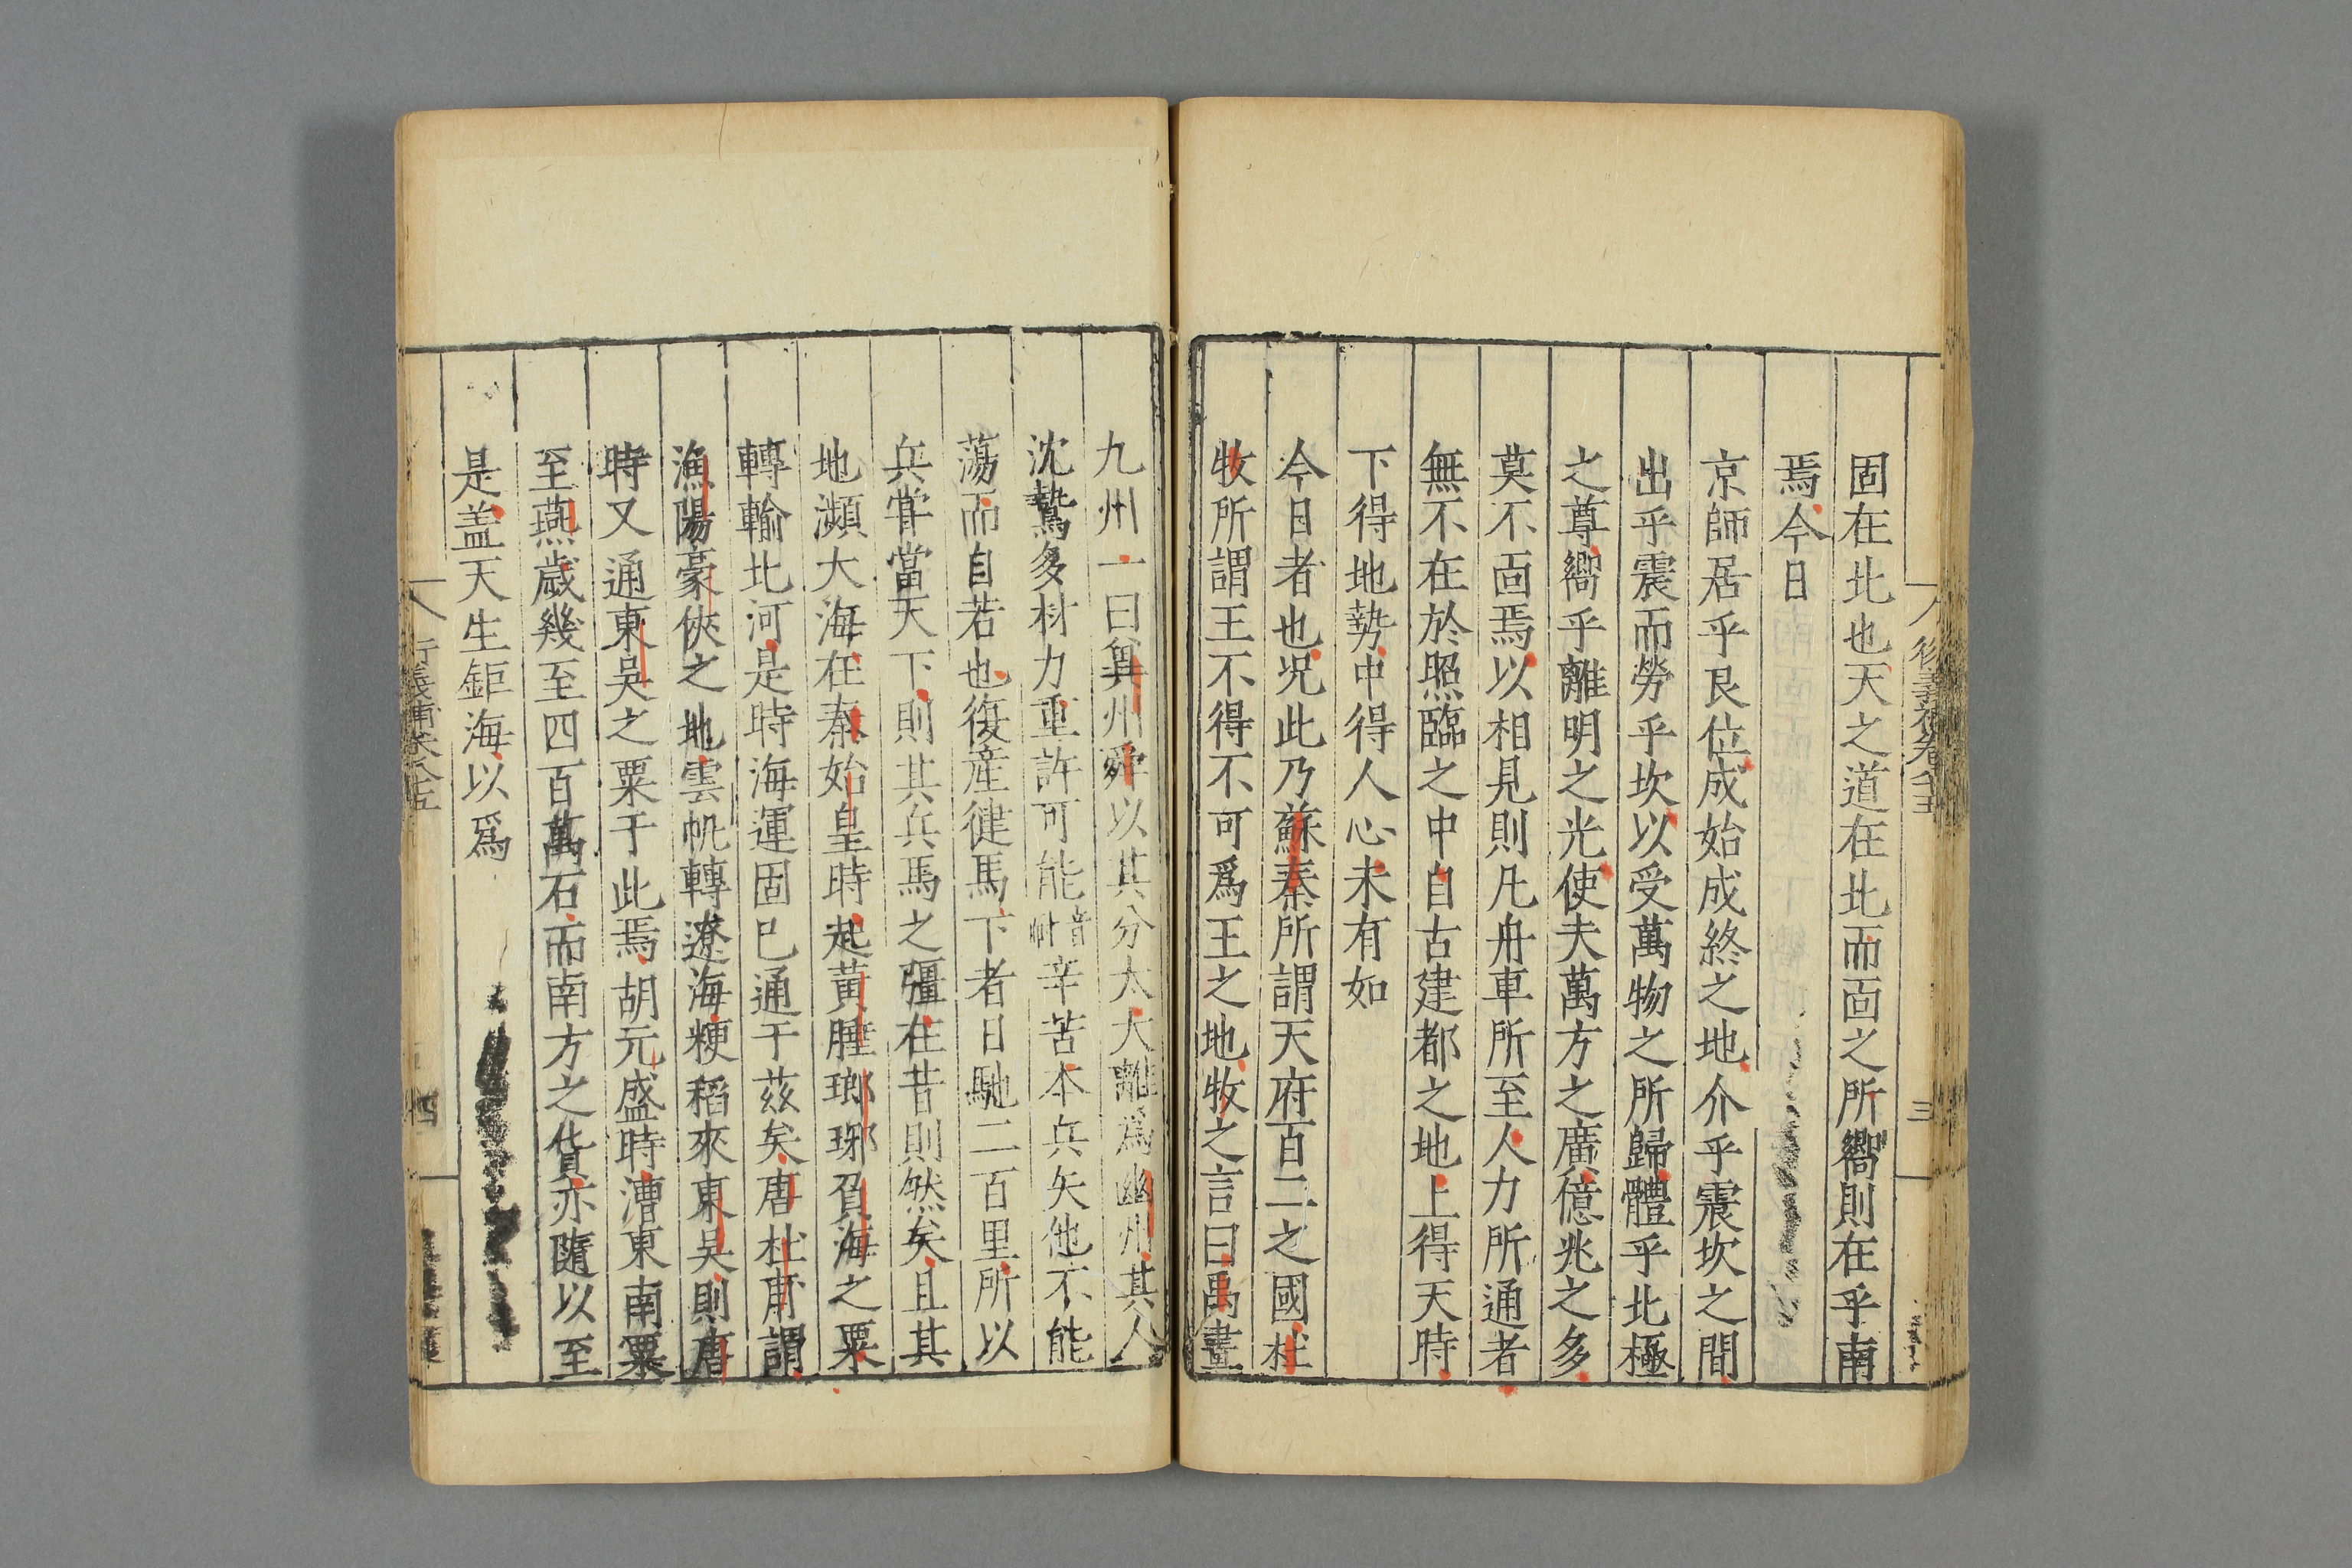 固在北也天之道在北而面之所嚮則在乎南
焉今日
京師居乎艮位成始成終之地介乎震坎之間
出乎震而勞乎坎以受萬物之所歸體乎北極
之尊嚮乎離明之光使夫萬方之廣億兆之多
莫不面焉以相見則凡舟車所至人力所通者
無不在於照臨之中自古建都之地上得天時
下得地勢中得人心未有如
今日者也况此乃蘇秦所謂天府百二之國杜
牧所謂王不得不可爲王之地牧之言曰禹畫
九州一曰兾州舜以其分太大離爲幽州其人
沈鷙多材力重許可能辛苦本兵矢他不能
蕩而自若也復産徤馬下者日馳二百里所以
兵甞當天下則其兵馬之彊在昔則然矣且其
地瀕大海在秦始皇時起黃腄瑯琊負海之粟
轉輸北河是時海運固已通于茲矣唐杜甫謂
漁陽豪俠之地雲帆轉遼海粳稻來東吳則唐
時又通東吳之粟于此焉胡元盛時漕東南粟
至燕歲幾至四百萬石而南方之貨亦隨以至
是盖天生鉅海以爲